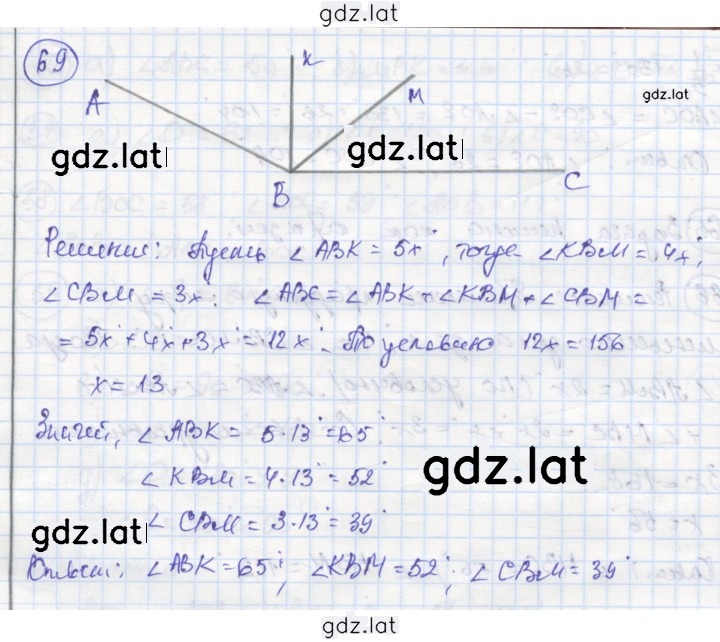 gdz.lat
69
A
K
M
gdz.lat
gdz.lat
gdz.lat
B
C
Решение: Пусть ∠ABK = 5x°, тогда ∠KBM = 4x°,
∠CBM = 3x°. ∠ABC = ∠ABK + ∠KBM + ∠CBM =
= 5x° + 4x° + 3x° = 12x°. По условию 12x = 156
x = 13
Значит, ∠ABK = 5·13° = 65°
∠KBM = 4·13° = 52°
gdz.lat
∠CBM = 3·13° = 39°
gdz.lat
Ответ: ∠ABK = 65°, ∠KBM = 52°, ∠CBM = 39°
gdz.lat